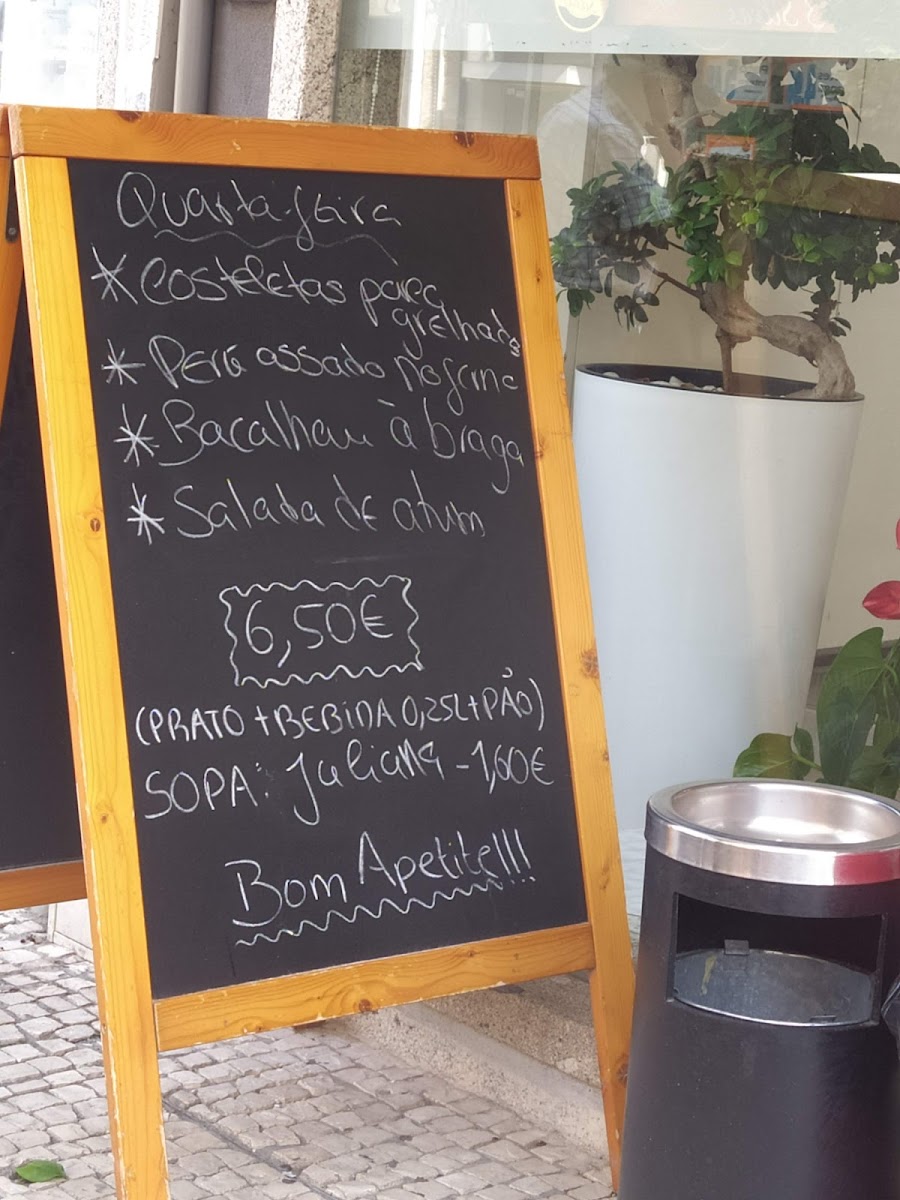 Quarta-feira
* Costeletas porco
grelhadas
* Peru assado no forno
* Bacalhau à braga
* Salada de atum
6,50€
(PRATO + BEBIDA 0,25L + PÃO)
SOPA: Juliana - 1,60€
Bom Apetite!!!